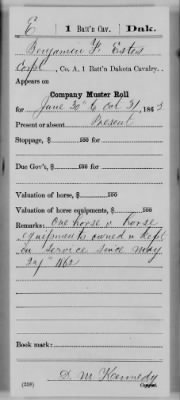 E | 1 Batt'n Cav. | Dak.
Benjamin F. Estes
Corpl, Co. A, 1 Batt'n Dakota Cavalry.
Appears on
Company Muster Roll
for June 30 to Oct 31, 1863
Present or absent Present
Stoppage, $ 100 for
Due Gov't, $ 100 for
Valuation of horse, $ 100
Valuation of horse equipments, $ 100
Remarks: One horse & horse
equipments owned & kept
in service since May
1862
Book mark:
D. M. Kennedy
(358) Copyist.